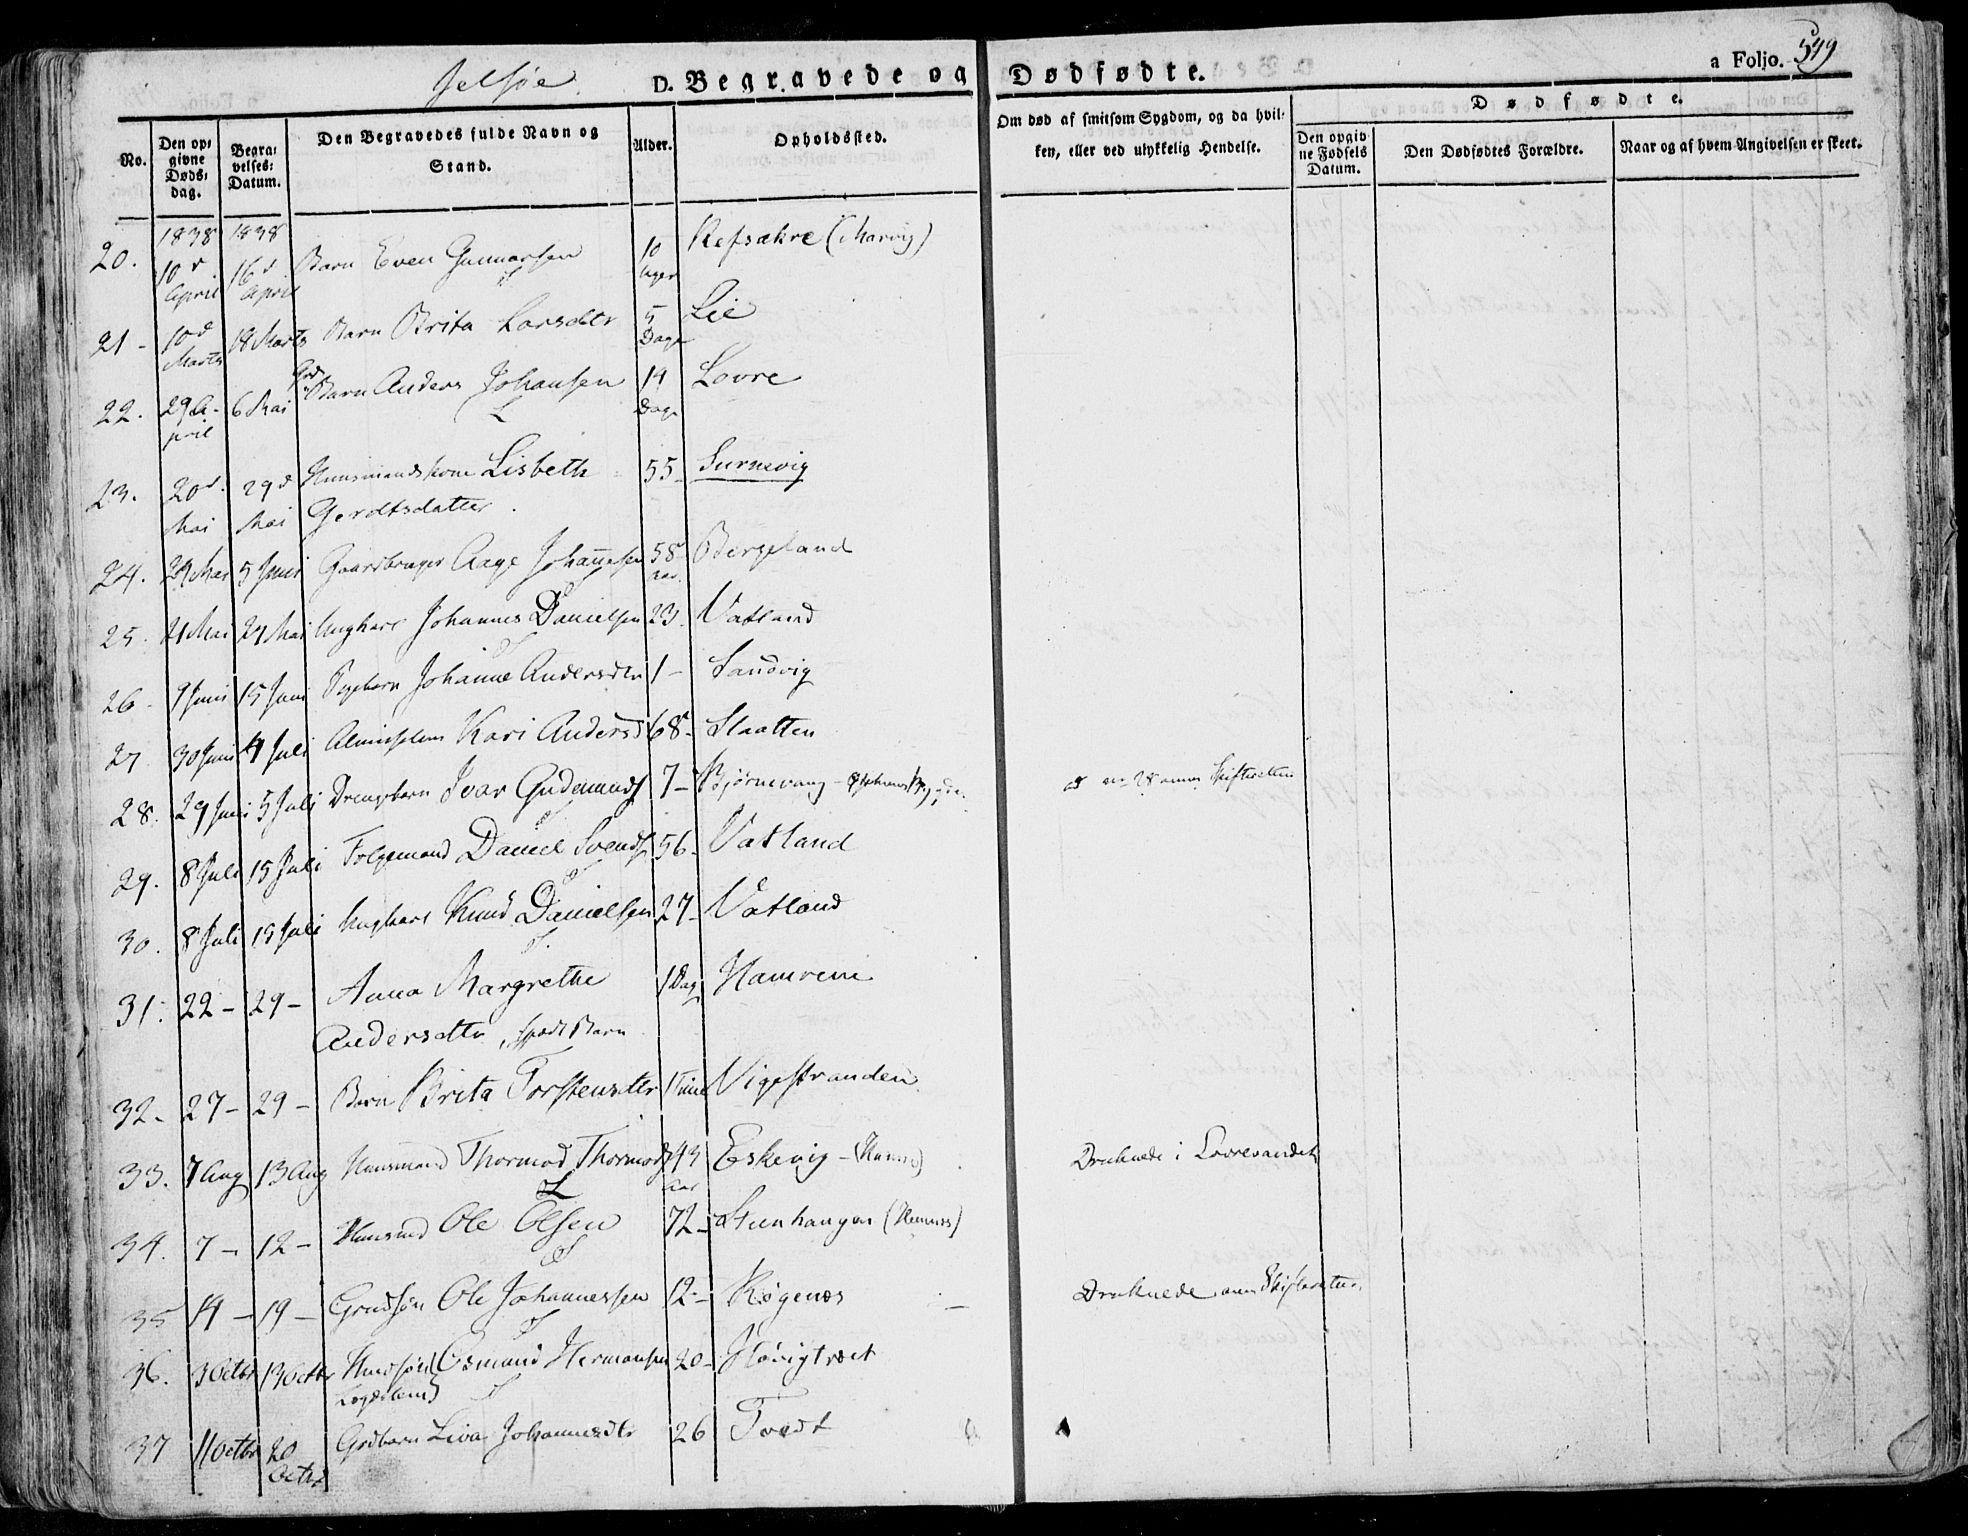 Jelsøe.
D. Begravede og Dødfødte.
a Folio. 549
No.
Den opgivne Døds dag.
Begravelses Datum.
Den Begravedes fulde Navn og Stand.
Alder.
Opholdssted.
Om død af smitsom Sygdom, og da hvilken, eller ved ulykkelig Hendelse.
Dødfødte.
Den opgivne Fødsels Datum.
Den Dødfødtes Forældre.
Naar og af hvem Angivelsen er skeet.
1838 1838
20. 10d April 16d April Barn Even Gunnarsen 10 uger Refsakre (Marvig)
21 - 10d Marts 18 Marts Barn Brita Larsdtr 5 Dage Lie
22. 29 April 6 Mai Grd Barn Anders Johansen 14 Dage Lovre
23. 20d. Mai 29d Mai Huusmandskone Lisbeth Gerdtsdatter. 55- Surnevig
24. 29 Mai 5 Juni Gaardbruger Aage Johannesen 58 aar. Bergeland
25. 21 Mai 27 Mai Ungkarl Johannes Danielsen 23. Vatland
26 - 9 Juni 15 Juni Pigebarn Johanne Andersdtr 1 - Sandvig
27 30 Juni 4 Juli Almisselem Kari Andersd 68- Slaatten
28. 29 Juni 5 Juli Drengebarn Ivar Gudmunds 7 - Bjørnevang -
29. 8 Juli 15 Juli Folgemand Daniel Svends 56- Vatland
30. 8 Juli 15 Juli Ungkarl Knud Danielsen 27- Vatland
31. 22 - 29 - Anna Margrethe Andersdtr, spædt Barn 1 Dag Hamrene
32. 27 - 29 - Barn Brita Torstensdtr 1 Time Vigestranden
33. 7 Aug 13 Aug Huusmand Thormod Thormods 43 aar Eskevig - Druknede i Lovrevandet
34. 7 - 12 - Huusmd Ole Olsen 72 - Steenhangen
35 14 - 19 - Grdsøn Ole Johannessen 12 - Røgenæs - Druknede
36. 3 Octbr 13 Octbr Huusøn Osmund Hermansen 20- Høvigtræet
37 11 Octbr 20 Octbr Grdbarn Liva Johannesdtr 26 Tvedt